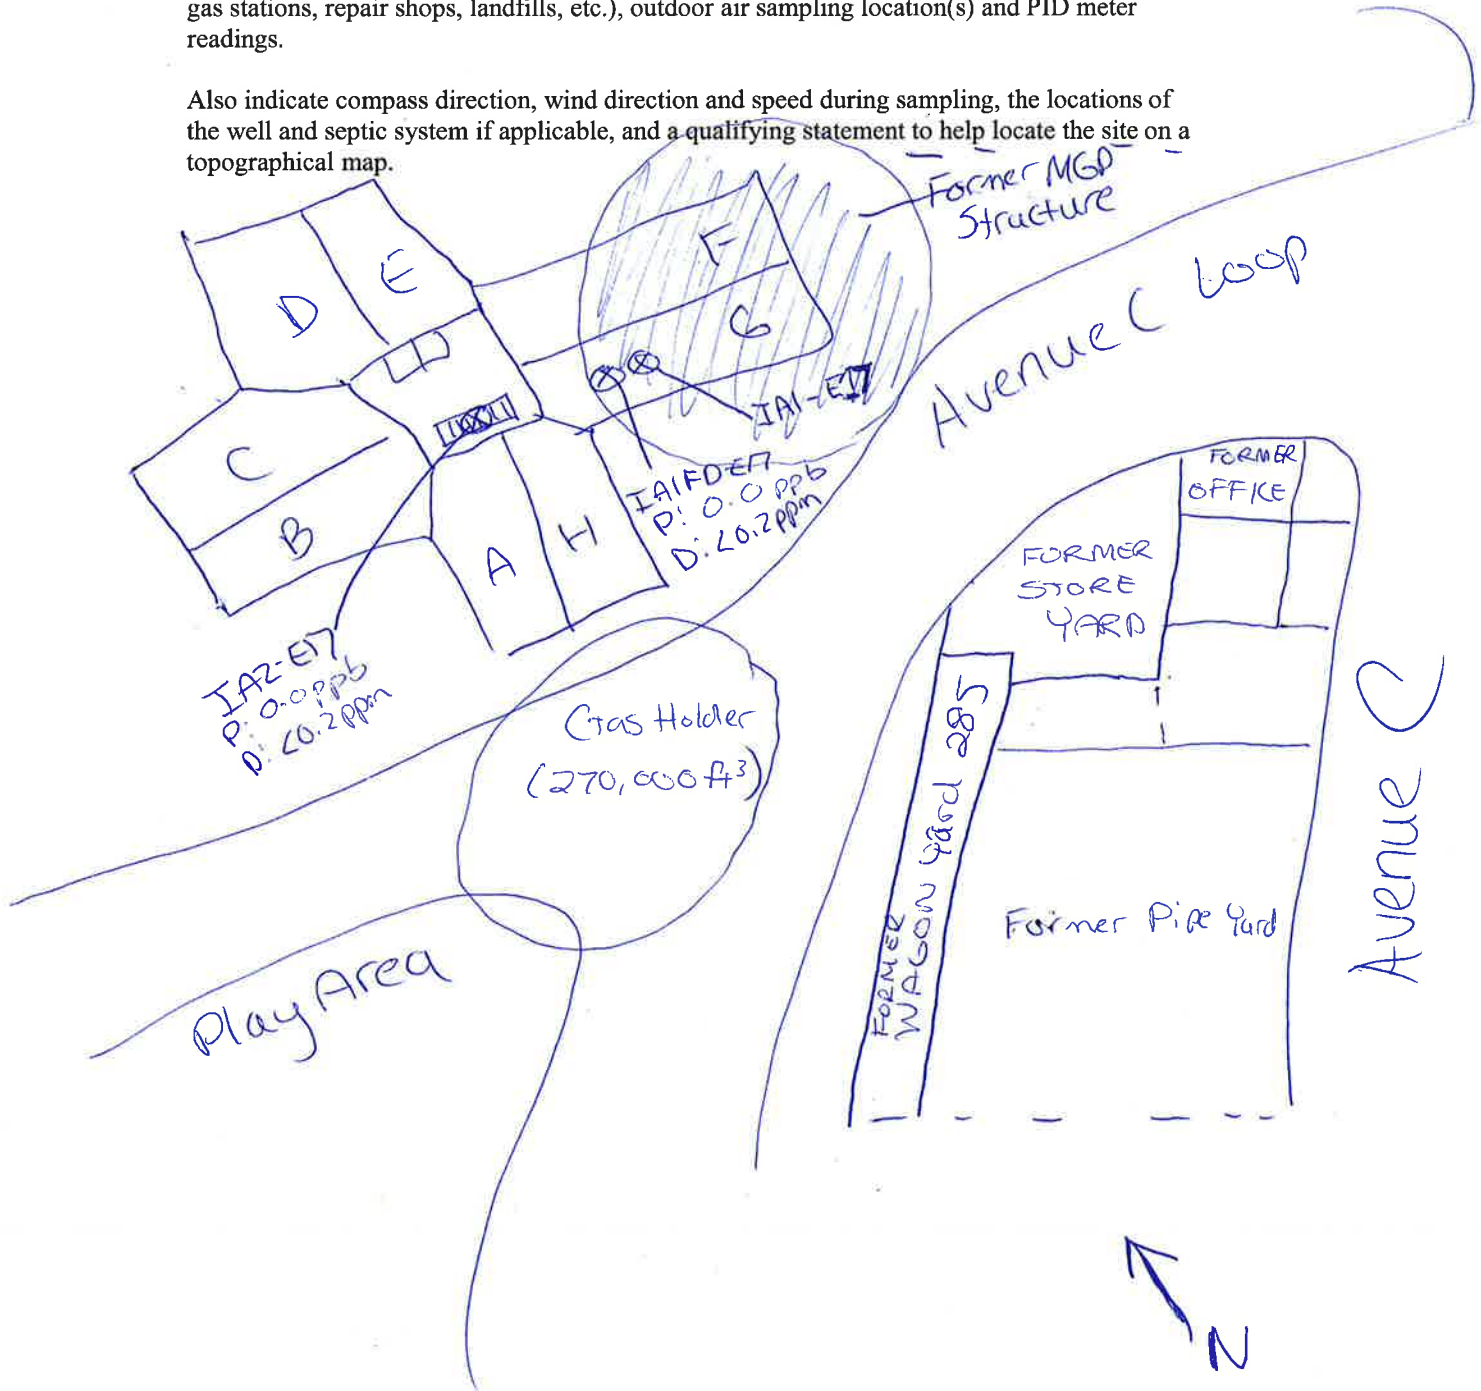 gas stations, repair shops, landfills, etc.), outdoor air sampling location(s) and PID meter
readings.
Also indicate compass direction, wind direction and speed during sampling, the locations of
the well and septic system if applicable, and a qualifying statement to help locate the site on a
topographical map.
Former MGP
Structure
D
E
F
G
Avenue C Loop
IA1-E17
C
B
A
H
IA1FD-E17
P: 0.0 ppb
D: <0.2ppm
IA2-E17
P: 0.0ppb
D: <0.2ppm
Gas Holder
(270,000 ft³)
FORMER
OFFICE
FORMER
STORE
YARD
FORMER
WAGON Yard 285
Former Pipe Yard
Avenue C
Play Area
N